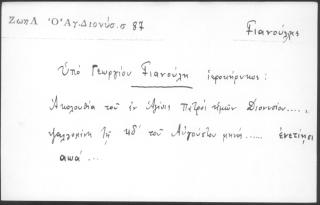 ΖωηΛ Ὁ Ἁγ.Διονύσ.σ 87
Γιανούλης
Ὑπό Γεωργίου Γιανούλη ἱεροκήρυκος:
Ἀκολουθία τοῦ ἐν Ἁγίοις Πατρός ἡμῶν Διονυσίου.....,
ψαλλομένη τῇ κδ΄ τοῦ Αὐγούστου μηνός ..... ἐνετίῃσι
αωά...